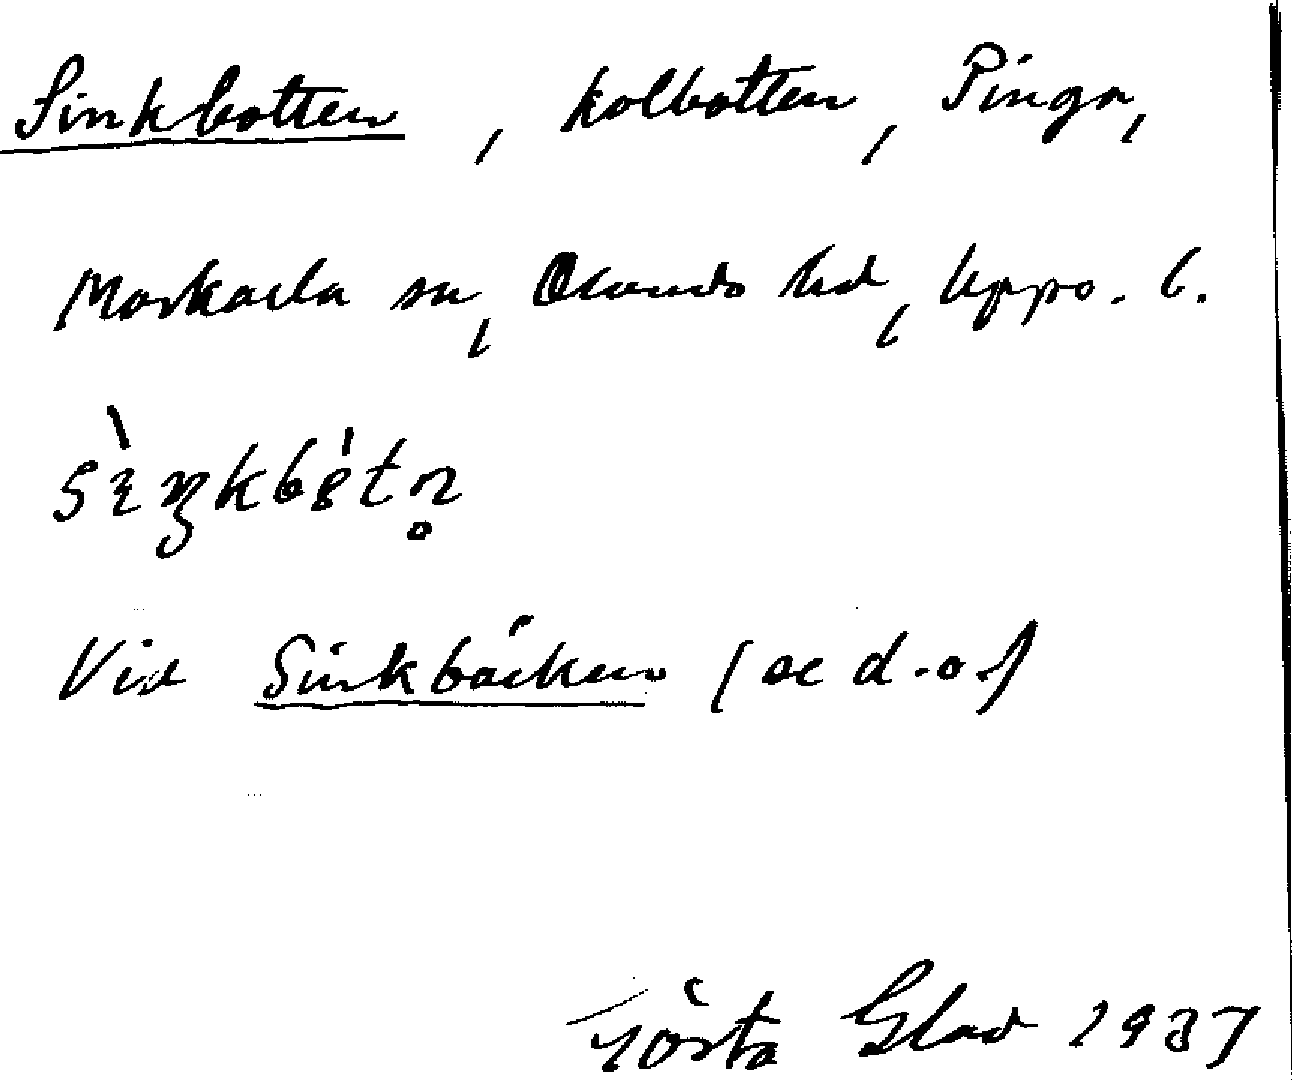 Sinkbotten, kolbotten, Pinga,
Morkarla sn, Olands hd, Upps. l.
Vid Sinkbäcken (se d.o.)
Gösta Glad 1937